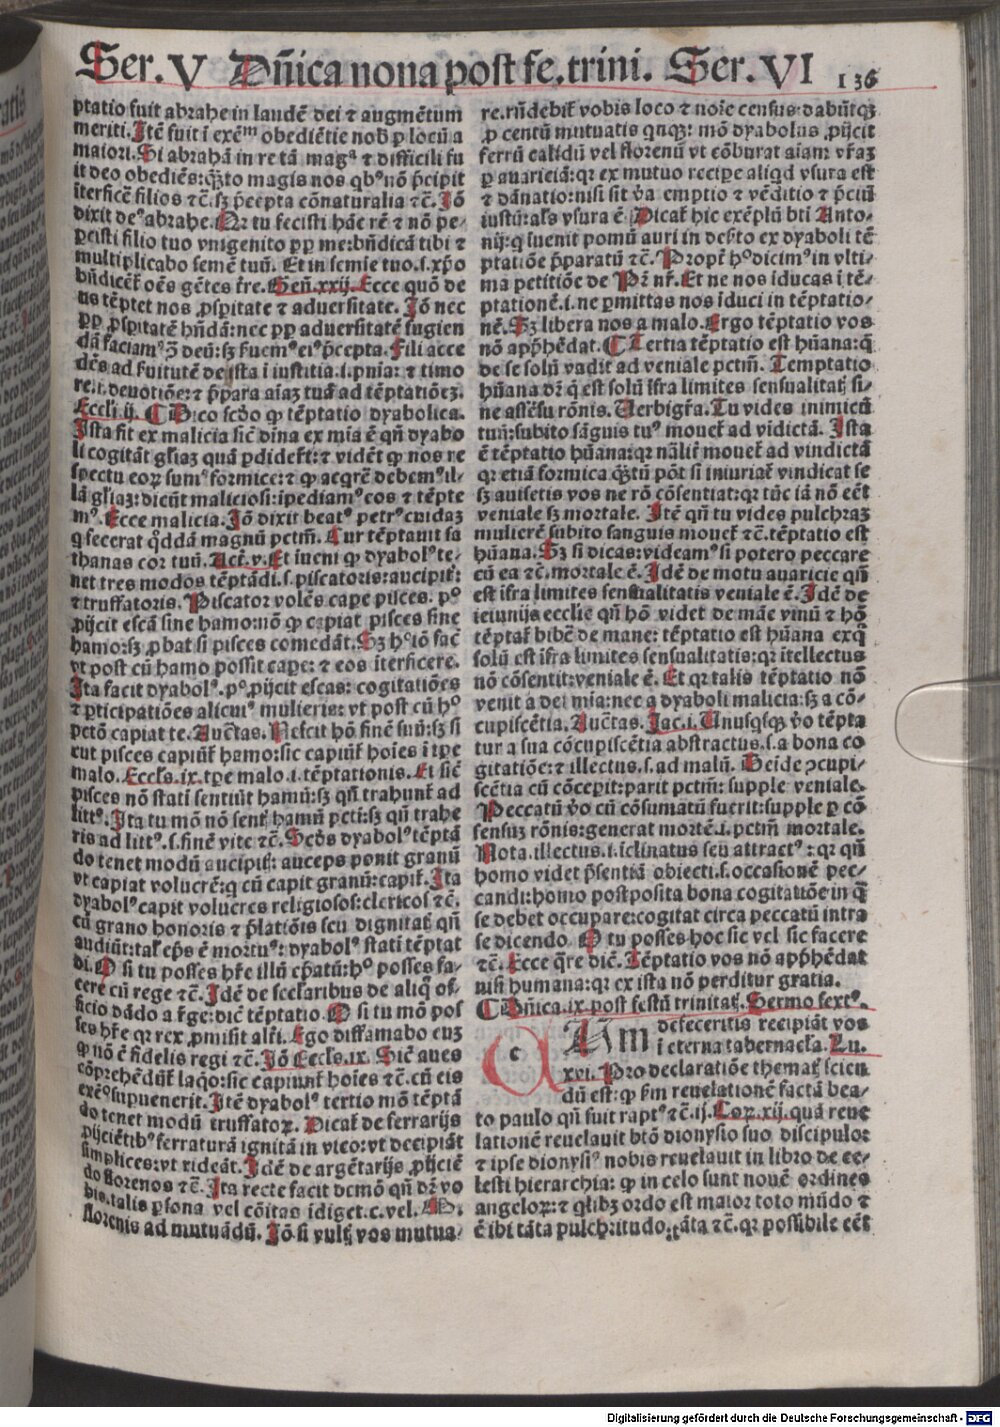 Ser. V Dñica nona post fe. trini. Ser. VI 136
ptatio fuit abrahe in laudẽ dei ⁊ augmẽtum
meriti. Itẽ fuit ĩ exẽᵐ obediẽtie nob̃ ꝑ locũ a
maiori. Si abrahã in re tã magᵃ ⁊ difficili fu
it deo obediẽs: q̃ꝫto magis nos qbꝰ nõ p̃cipit
ĩterficẽ filios ⁊c̃. sꝫ p̃cepta cõnaturalia ⁊c̃. Iõ
dixit deꝰ abrahe. Qr tu fecisti hãc rẽ ⁊ nõ pe-
ꝑcisti filio tuo vnigenito ꝓp me: bñdicã tibi ⁊
multiplicabo semẽ tuũ. Et in semĩe tuo .s. xp̃o
bñdicẽt̃ oẽs gẽtes tr̃e. Geñ. xxij. Ecce quõ de
us tẽptet nos ꝓsp̃itate ⁊ aduersitate. Iõ nec
ꝓp ꝓsp̃itatẽ hñdã: nec ꝓp aduersitatẽ fugien
dã faciamꝰ ꝯ̃ deũ: sꝫ s̃uemꝰ eiꝰ p̃cepta. Fili acce
dẽs ad s̃uitutẽ dei sta ĩ iustitia .i. pñia: ⁊ timo
re .i. deuotiõe: ⁊ p̃para aĩaꝫ tuã ad tẽptatiõeꝫ.
Eccl̃i. ij. ¶ Dico sc̃do ꝙ tẽptatio dyabolica.
Ista fit ex malicia sic̃ dĩna ex mĩa ẽ qñ dyabo
li cogitãt gl̃iaꝫ quã ꝑdidert̃: ⁊ vidẽt ꝙ nos re
spectu eoꝝ sumꝰ formice: ⁊ ꝙ acqr̃e debemꝰ il-
lã gl̃iaꝫ: dicũt maliciosi: ĩpediamꝰ eos ⁊ tẽpte
mꝰ. Ecce malicia. Iõ dixit beatꝰ petrꝰ cuidaꝫ
q fecerat q̊ddã magnũ pctm̃. Cur tẽptauit sa
thanas cor tuũ. Act̃. v. Et iueni ꝙ dyabolꝰ te-
net tres modos tẽptãdi .s. piscatoris: aucipit̃:
⁊ truffatoris. Piscator volẽs cape pisces. pº
ꝓijcit escã sine hamo: nõ ꝙ capiat pisces sine
hamo: sꝫ ꝓbat si pisces comedãt. Sꝫ hº iõ fac̃
vt post cũ hamo possit cape: ⁊ eos ĩterficere.
Ita facit dyabolꝰ. pº ꝓijcit escas: cogitatiões
⁊ ꝑticipatiões alicuiꝰ mulieris: vt post cũ hº
pctõ capiat te. Auc̃tas. Nescit hõ finẽ suũ: sꝫ si
cut pisces capiũt̃ hamo: sic capiũt̃ hoĩes ĩ tp̃e
malo. Eccl̃s. ix. tp̃e malo .i. tẽptationis. Et sic̃
pisces nõ stati sentiũt hamũ: sꝫ qñ trahunt̃ ad
litt̃ꝰ. Ita tu mõ nõ sent̃ hamũ pct̃i: sꝫ qñ trahe
ris ad littꝰ. s. finẽ vite ⁊c̃. Sc̃ds dyabolꝰ tẽptã
do tenet modũ aucipis̃: auceps ponit granũ
vt capiat volucrẽ: q cũ capit granũ: capit̃. Ita
dyabolꝰ capit volucres religiosos: clericos ⁊c̃.
cũ grano honoris ⁊ p̃latiõis seu dignitat̃ qñ
audiũt: tal̃ ep̃s ẽ mortuꝰ: dyabolꝰ stati tẽptat
di. O si tu posses hr̃e illũ ep̃atũ: hº posses fa-
cere cũ rege ⁊c̃. Idẽ de scel̃aribus de aliq̊ of-
ficio dãdo a r̃ge: dic̃ tẽptatio. O si tu mõ pos
ses hr̃e qr rex ꝓmisit alt̃i. Ego diffamabo euꝫ
ꝙ nõ ẽ fidelis regi ⁊c̃. Iõ Eccl̃s. ix. Sic̃ aues
cõp̃hẽdũt̃ laq̊o: sic capiunt̃ hoĩes ⁊c̃. cũ eis
exẽº supuenerit. Itẽ dyabolꝰ tertio mõ tẽptã
do tenet modũ truffatoꝝ. Dicat̃ de ferrarijs
ꝓijciẽtibꝰ ferraturã ignitã in vico: vt decipiãt
simplices: vt rideãt. Idẽ de argẽtarijs ꝓijciẽ
do florenos ⁊c̃. Ita recte facit demõ qñ dr̃ vo
bis. talis ꝑsona vel cõitas ĩdiget .c. vel. M.
florenis ad mutuãdũ. Iõ si vult̃ vos mutua-
re. rñdebit̃ vobis loco ⁊ noĩe census dabũtqꝫ
ꝑ centũ mutuatis qnqꝫ: mõ dyabolus ꝓijcit
ferrũ calidũ vel florenũ vt cõburat aĩam vr̃aꝫ
ꝑ auariciã: qr ex mutuo recipe aliqd vsura est
⁊ dãnatio: nisi sit v̾a emptio ⁊ vẽditio ⁊ p̃ciũ
iustũ: al̃s vsura ẽ. Dicat̃ hic exẽplũ bti Anto-
nij: q ĩuenit pomũ auri in deserto ex dyaboli tẽ
ptatiõe p̃paratũ ⁊c̃. Propt̃ hº dicimꝰ in vlti-
ma petitiõe de Pr̃ nr̃. Et ne nos iducas i tẽ-
ptationẽ .i. ne ꝑmittas nos iduci in tẽptatio-
nẽ. Sꝫ libera nos a malo. Ergo tẽptatio vos
nõ app̃hẽdat. ¶ Tertia tẽptatio est hũana: q̃
de se solũ vadit ad veniale pctm̃. Temptatio
hũana dr̃ q̃ est solũ ĩfra limites sensualitat̃ si-
ne assẽsu rõnis. Verbigr̃a. Tu vides inimicũ
tuũ: subito sãguis tuꝰ mouet̃ ad vidictã. Ista
ẽ tẽptatio hũana: qr nãlit̃ mouet̃ ad vindictã
qr etiã formica q̃ꝫtũ põt si iniuriat̃ vindicat se
sꝫ auisetis vos ne rõ cõsentiat: qr tũc iã nõ eẽt
veniale sꝫ mortale. Itẽ qñ tu vides pulchraꝫ
mulierẽ subito sanguis mouet̃ ⁊c̃. tẽptatio est
hũana. Sꝫ si dicas: videamꝰ si potero peccare
cũ ea ⁊c̃. mortale ẽ. Idẽ de motu auaricie qñ
est ĩfra limites sensualitatis veniale ẽ. Idẽ de
ieiunijs ecclie qñ hõ videt de mãe vinũ ⁊ hõ
tẽptat̃ bibẽ de mane: tẽptatio est hũana ex q̊
solũ est ĩfra limites sensualitatis: qr ĩtellectus
nõ cõsentit: veniale ẽ. Et qr talis tẽptatio nõ
venit a dei mĩa: nec a dyaboli malicia: sꝫ a cõ-
cupiscẽtia. Auc̃tas. Iac. i. Vnusq̃sqꝫ v̾o tẽpta
tur a sua cõcupiscẽtia abstractus .s. a bona co
gitatiõe: ⁊ illectus .s. ad malũ. Deide ꝯcupi-
scẽtia cũ cõceperit: parit pctm̃: supple veniale.
Peccatũ v̾o cũ cõsumatũ fuerit: supple ꝑ cõ-
sensuꝫ rõnis: generat mortẽ .i. pctm̃ mortale.
Nota. illectus .i. ĩclinatus seu attractꝰ: qr qñ
homo videt p̃sentiã obiecti .s. occasionẽ pec-
candi: homo postposita bona cogitatiõe in q̃
se debet occupare: cogitat circa peccatũ intra
se dicendo. O tu posses hoc sic vel sic facere
⁊c̃. Ecce q̃re dic̃. Tẽptatio vos nõ app̃hẽdat
nisi humana: qr ex ista nõ perditur gratia.
¶ Dñica. ix. post festũ trinitat̃. Sermo sextꝰ.
c Um defeceritis recipiãt vos
ĩ eterna tabernacl̃a. Lu.
xvi. Pro declaratiõe themat̃ scien
dũ est: ꝙ ẽm reuelationẽ factã bea-
to paulo qñ fuit raptꝰ ⁊c̃. ij. Coꝝ. xij. quã reue
lationẽ reuelauit btõ dionysio suo discipulo:
⁊ ipse dionysiꝰ nobis reuelauit in libro de ce-
lesti hierarchia: ꝙ in celo sunt nouẽ ordines
angeloꝝ: ⁊ qlibꝫ ordo est maior toto mũdo ⁊
ẽ ibi tãta pulchritudo: tãta ⁊c̃. qr possibile eẽt
Digitalisierung gefördert durch die Deutsche Forschungsgemeinschaft - DFG